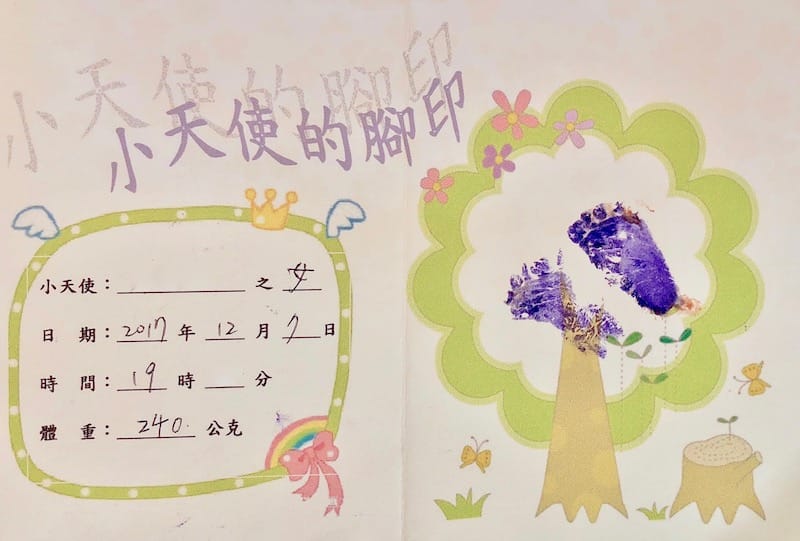 小天使的腳印
小天使的腳印
小天使：________ 之 女
日 期：2017 年 12 月 7 日
時 間：19 時 ___ 分
體 重：240. 公克